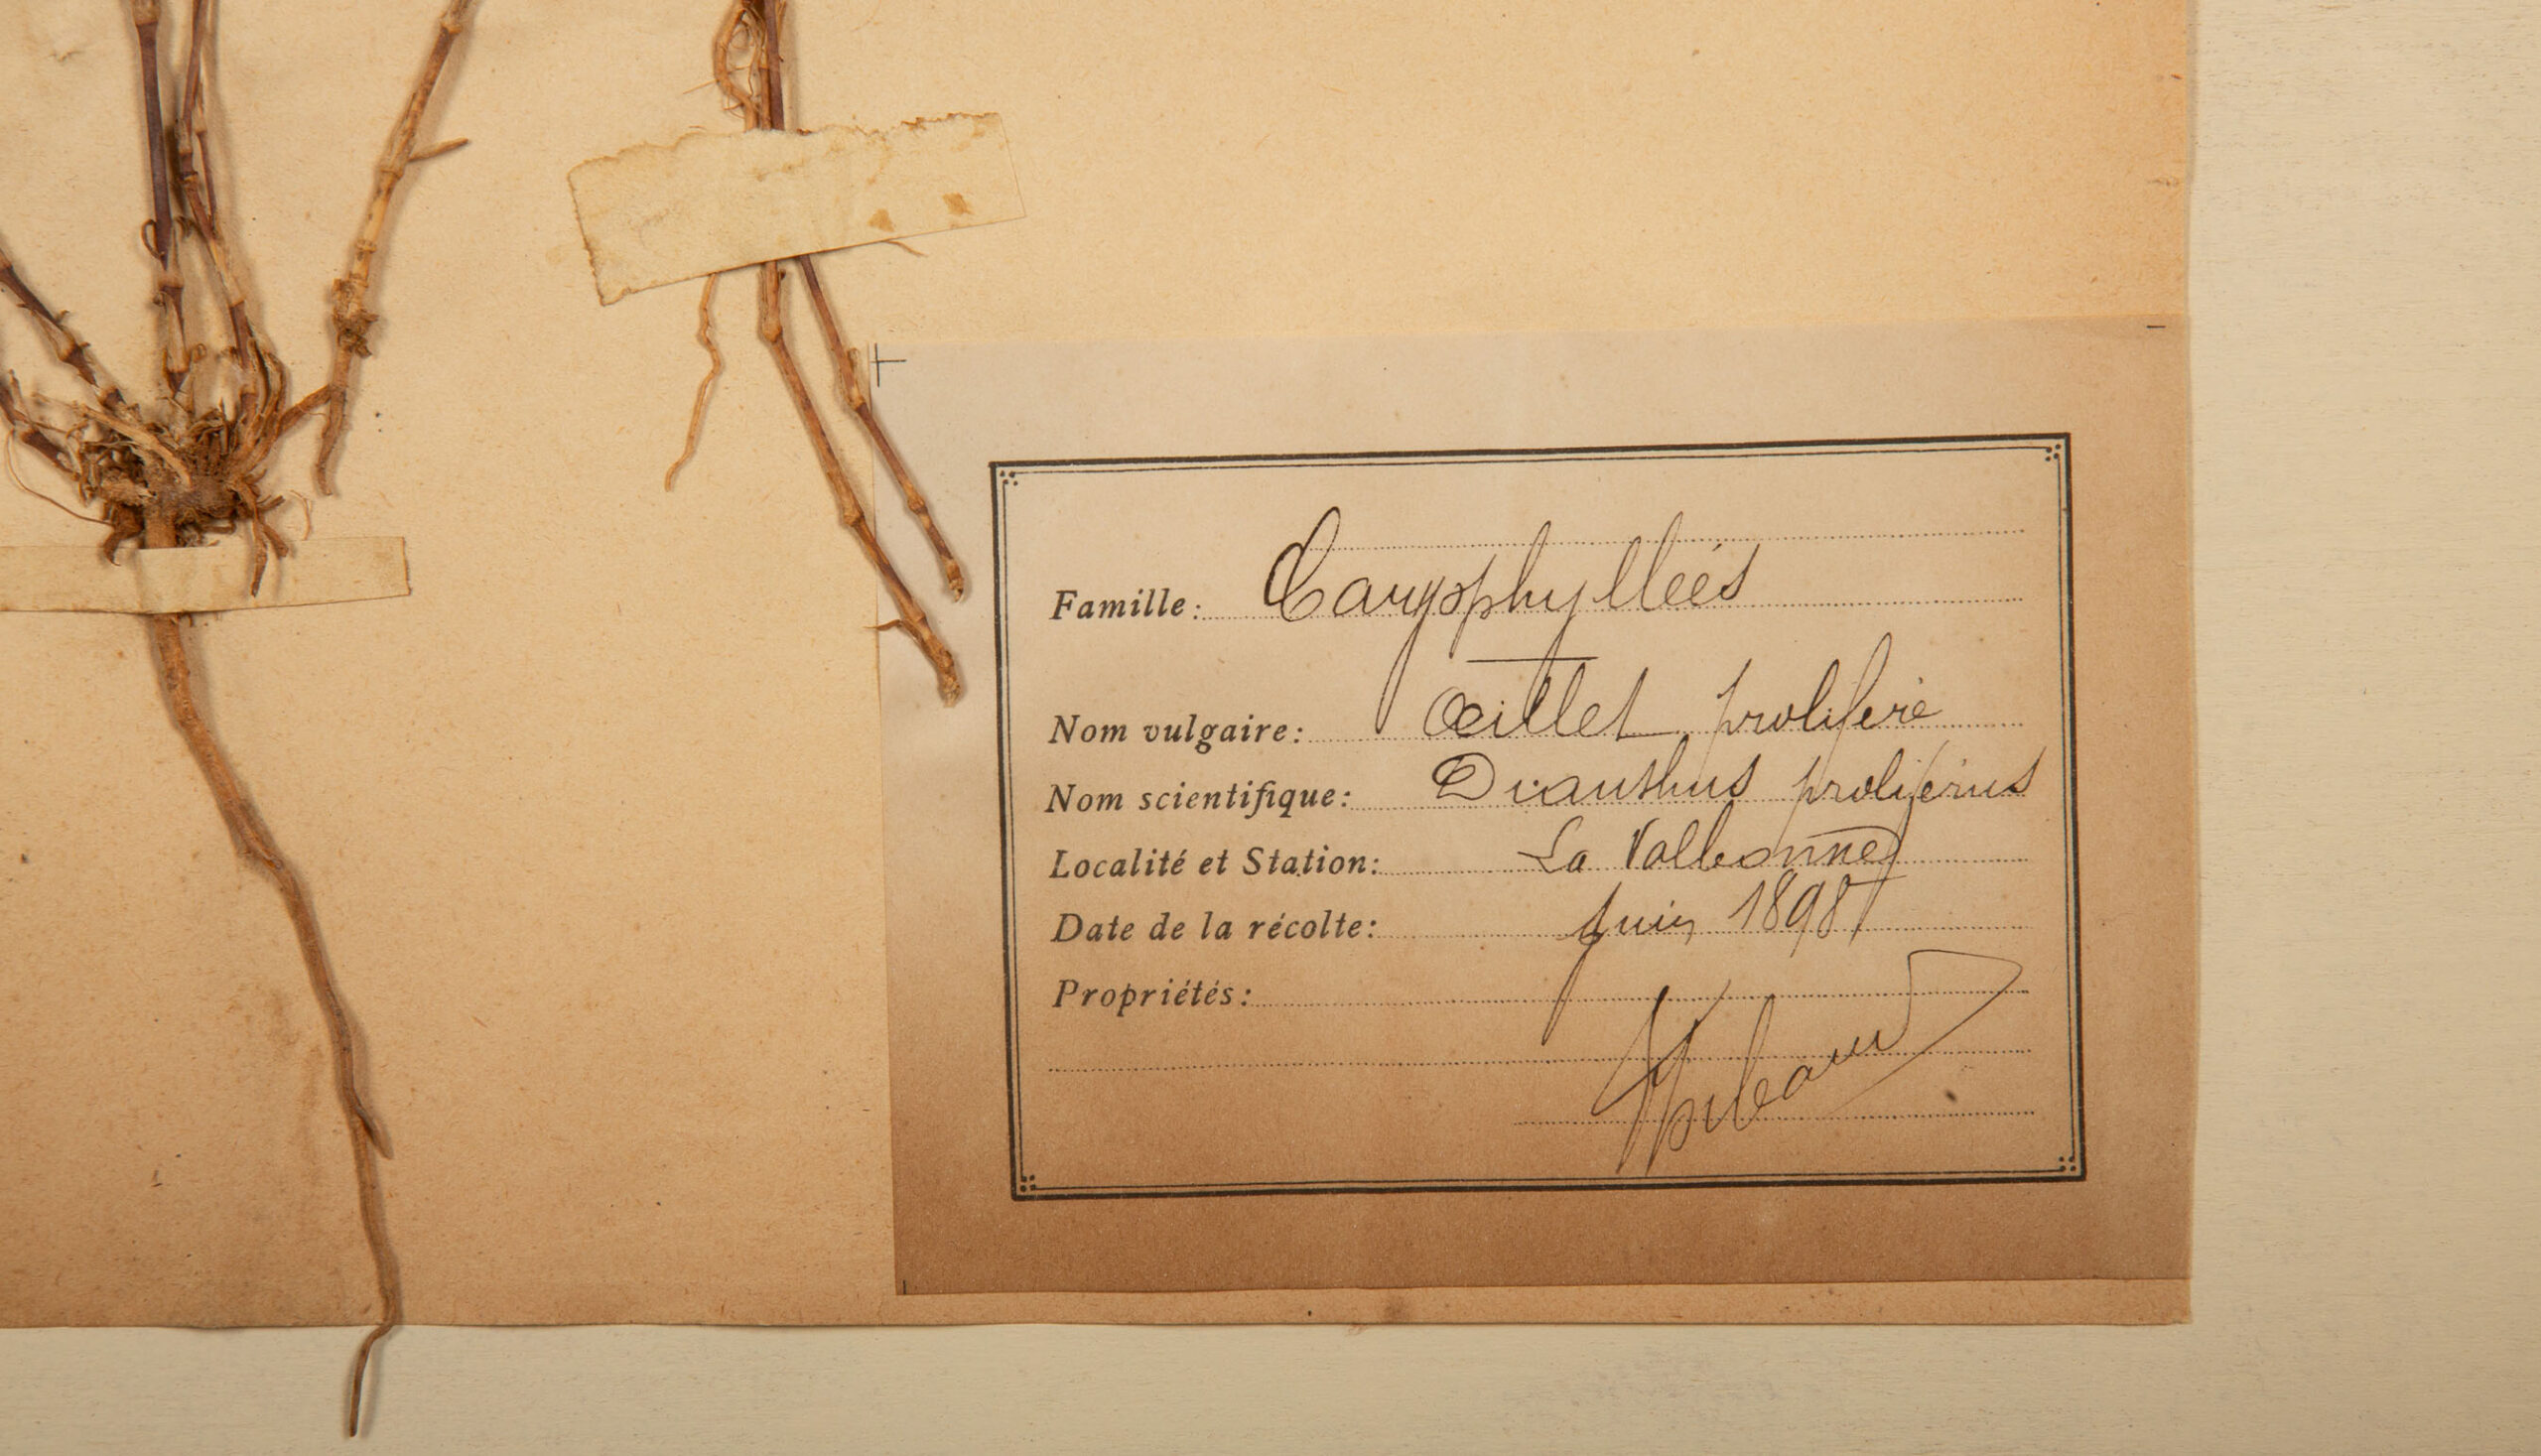 Famille: Caryophylleés
Nom vulgaire: Œillet proliférè
Nom scientifique: Dianthus proliférus
Localité et Station: La Valbonne
Date de la récolte: Juin 1898
Propriétés: